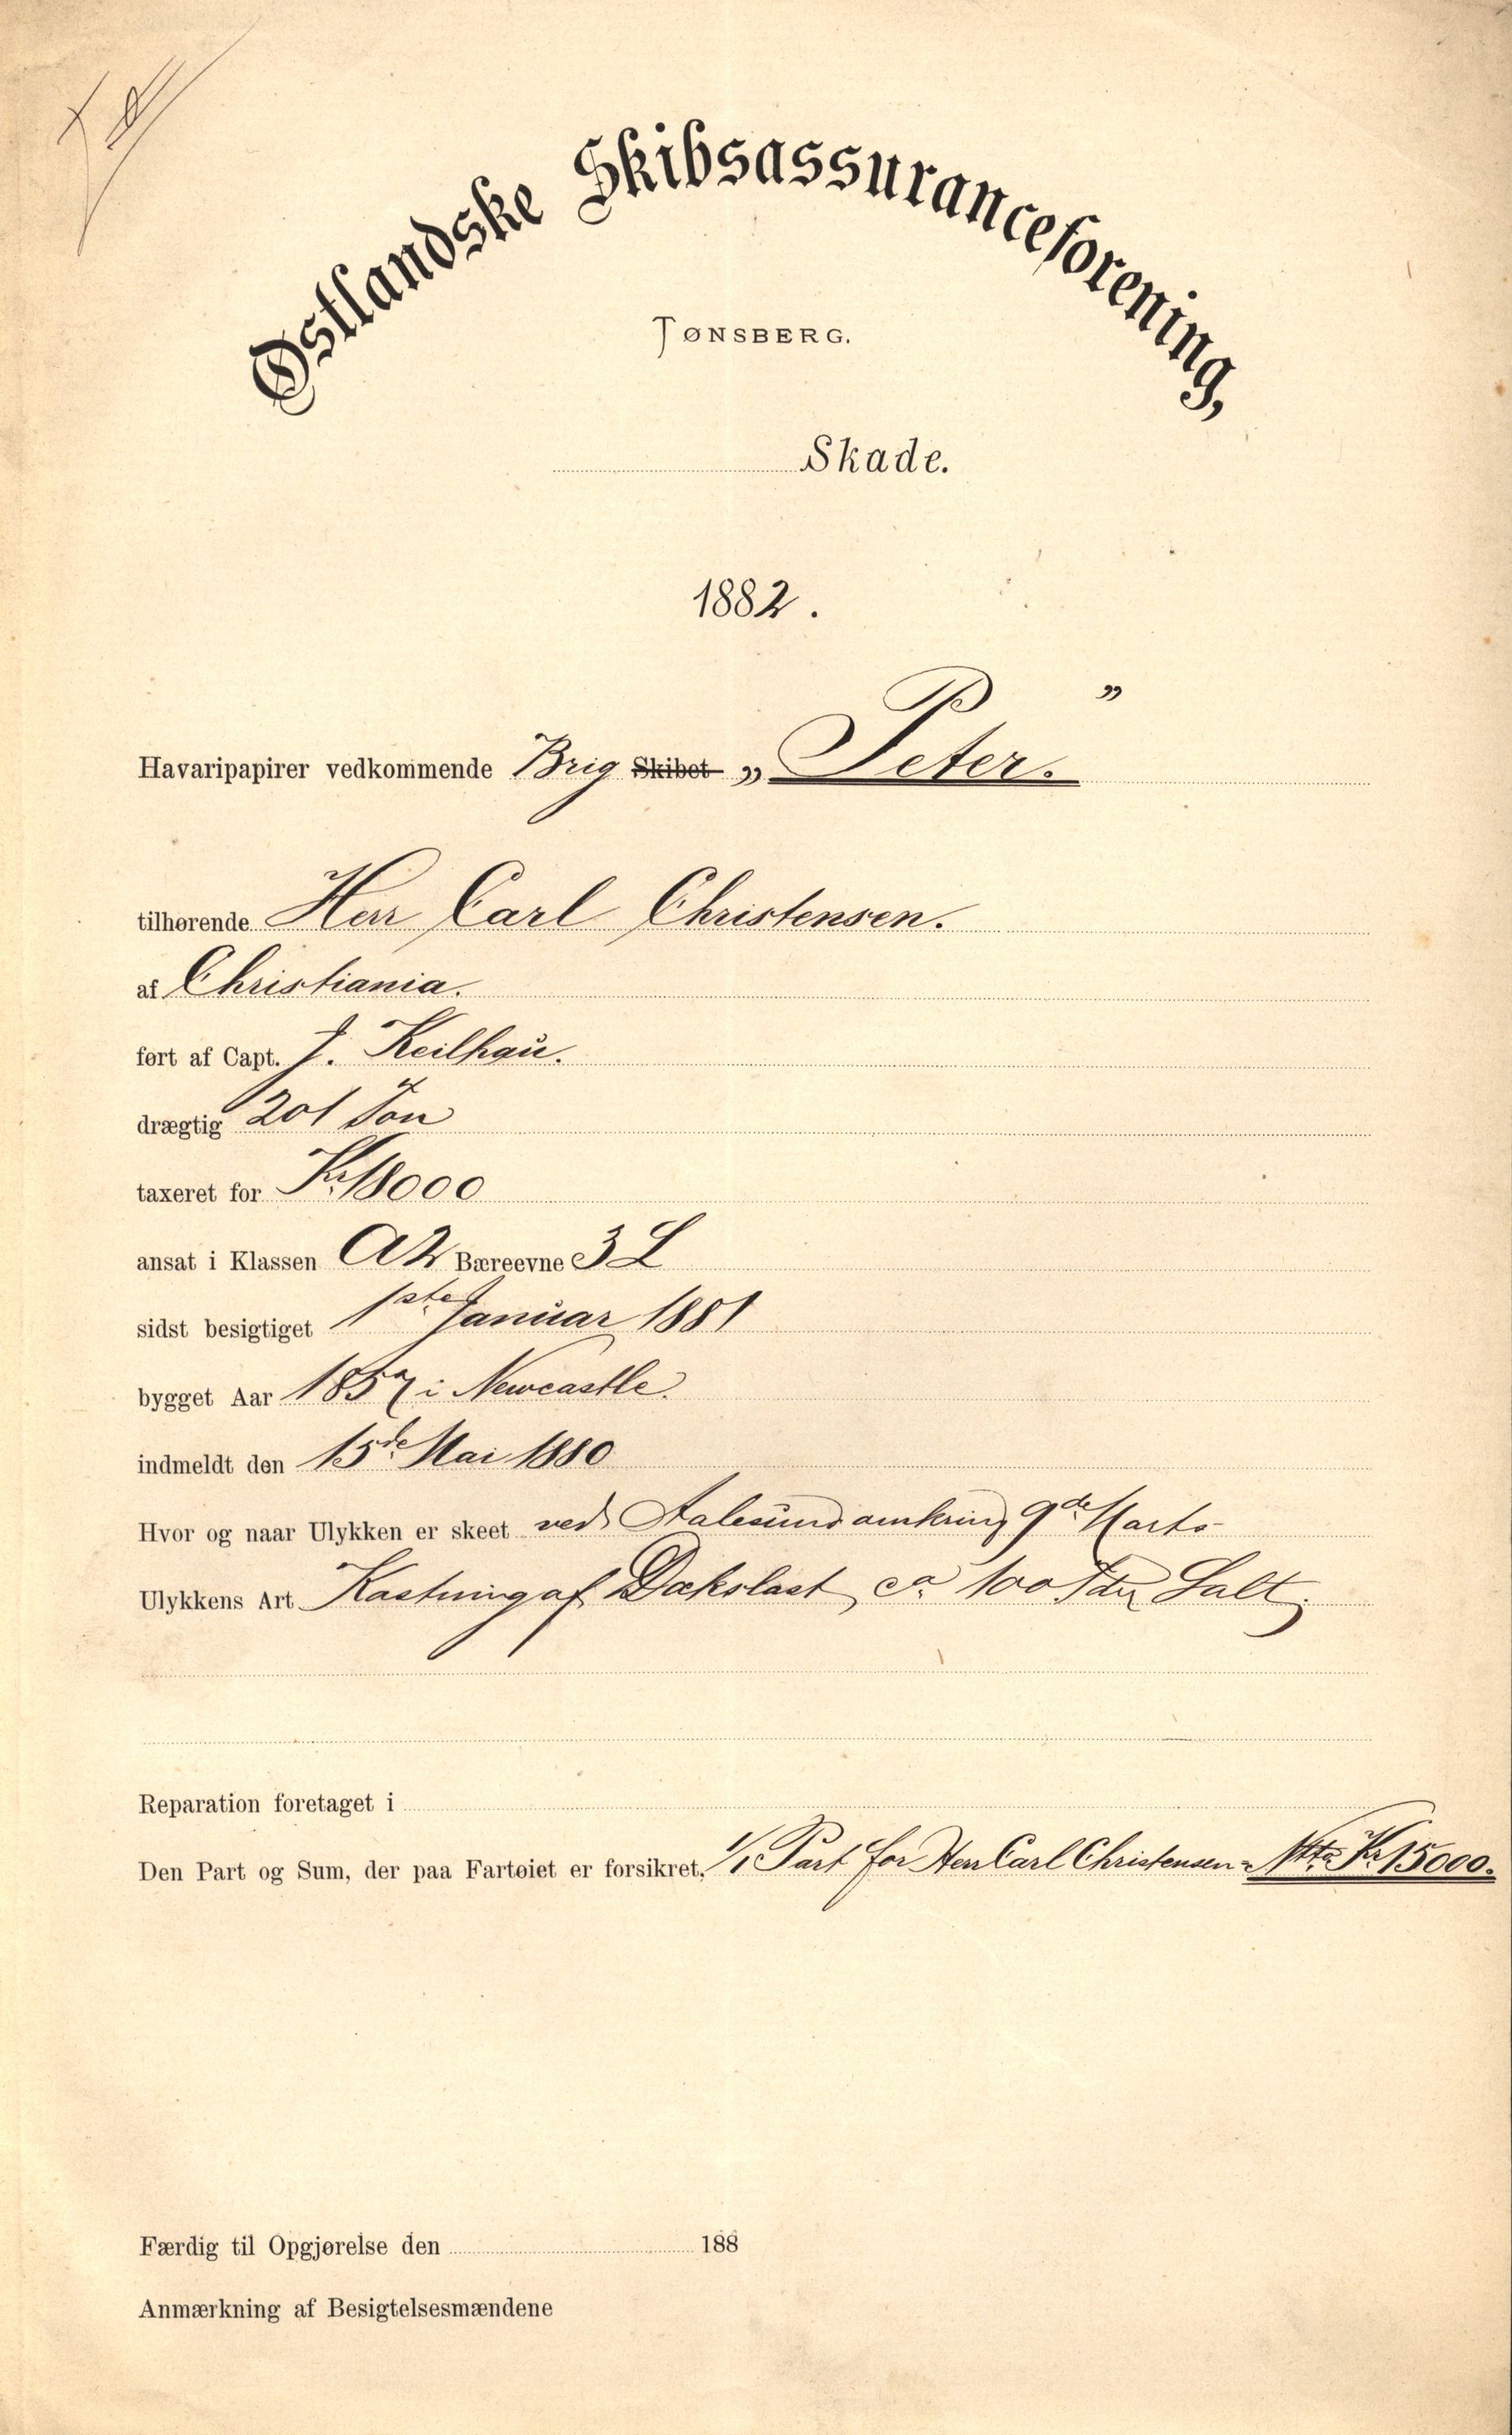 Østlandske Skibsassuranceforening,
TØNSBERG.
Skade.
1882.
Havaripapirer vedkommende Brig Skibet „Peter."
tilhørende Herr Carl Christensen.
af Christiania.
ført af Capt. J. Keilhau.
drægtig 201 Ton
taxeret for Kr 18000
ansat i Klassen A2 Bæreevne 3 L
sidst besigtiget 1ste Januar 1881
bygget Aar 1857 i Newcastle
indmeldt den 15de Mai 1880
Hvor og naar Ulykken er skeet ved Aalesund omkring 9de Marts
Ulykkens Art Kastning af Dækslast, ca 100 Tdr Salt.
Reparation foretaget i
Den Part og Sum, der paa Fartøiet er forsikret, 1/1 Part for Herr Carl Christensen - Kr 15000.
Færdig til Opgjørelse den 188
Anmærkning af Besigtelsesmændene